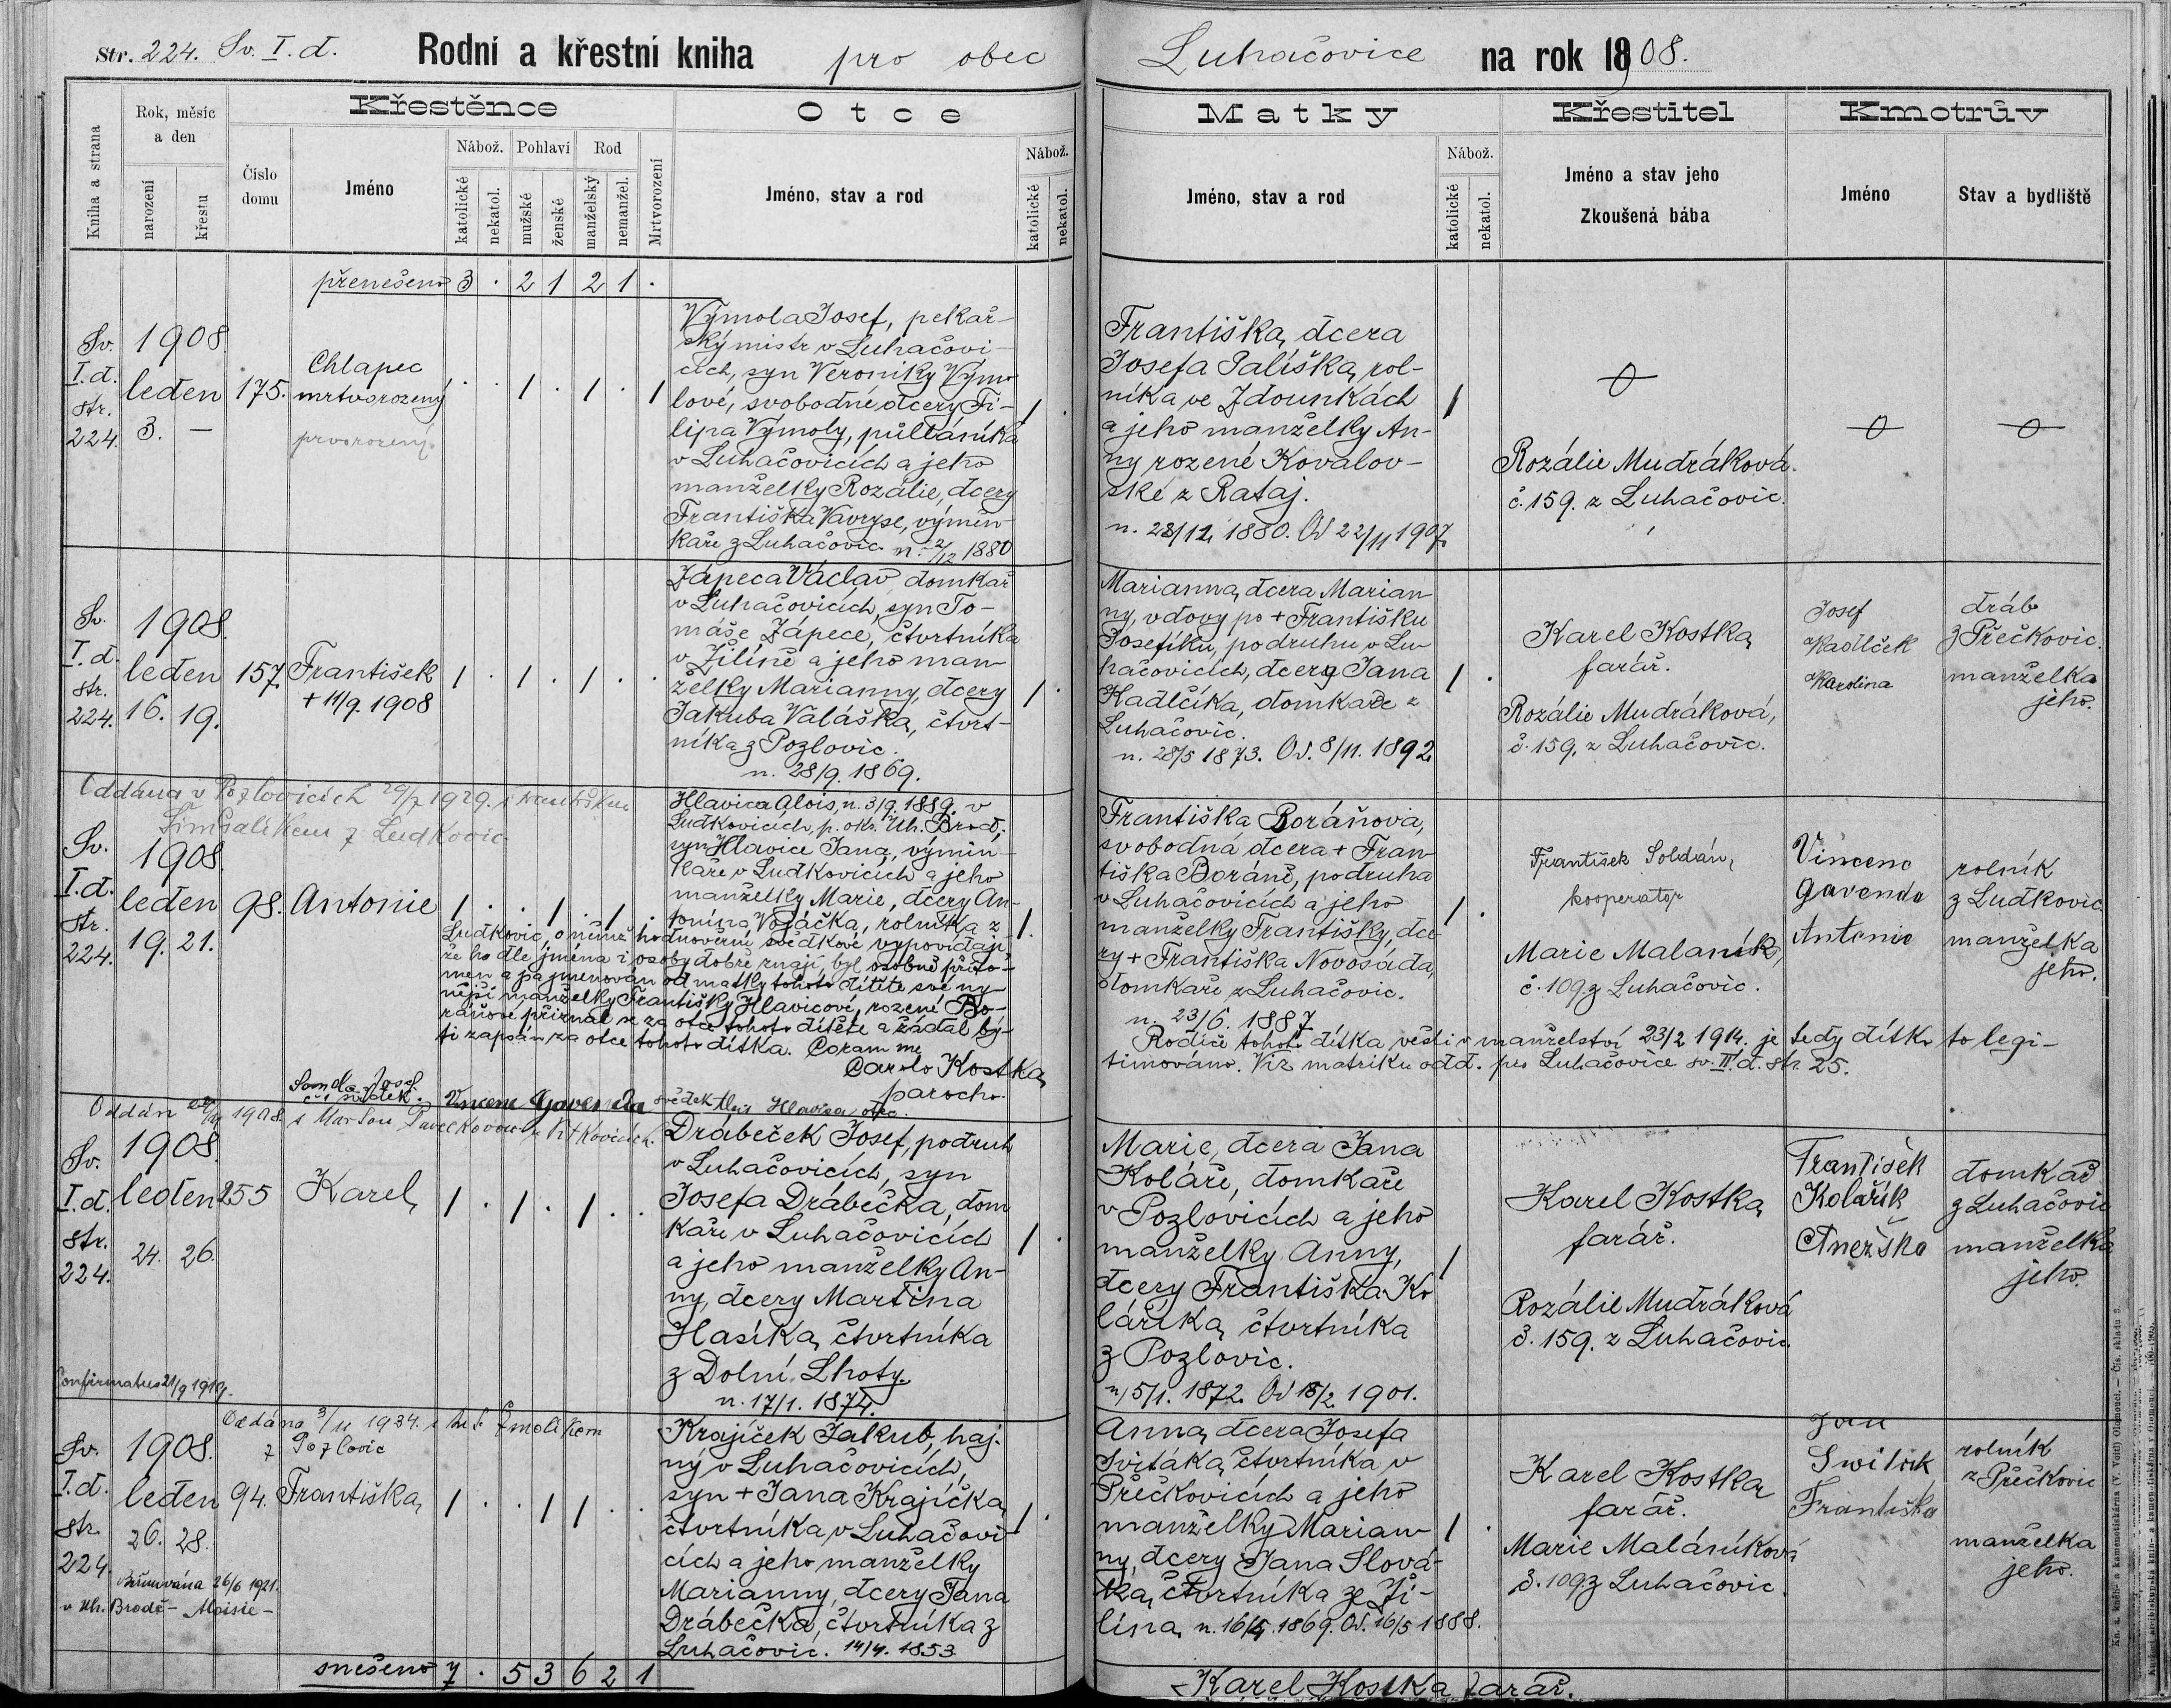 Str. 224. Sv. I. d. Rodní a křestní kniha pro obec Luhačovice na rok 1908.
Kniha a strana
Rok, měsíc a den
narození
křestu
Číslo domu
Křestěnce
Jméno
Nábož.
katolické
nekatol.
Pohlaví
mužské
ženské
Rod
manželský
nemanžel.
Mrtvorození
Otce
Jméno, stav a rod
Nábož.
katolické
nekatol.
Matky
Jméno, stav a rod
Nábož.
katolické
nekatol.
Křestitel
Jméno a stav jeho
Zkoušená bába
Kmotrův
Jméno
Stav a bydliště
přenešeno 3 . 2 1 2 1 .
Sv.
I. d.
str.
224.
1908
leden
3. —
175.
Chlapec
mrtvorozený
prvorozený.
Výmola Josef, pekař-
ský mistr v Luhačovi-
cích, syn Veroniky Výmo
lové, svobodné dcery Fi-
lipa Výmoly, půlláníka
v Luhačovicích a jeho
manželky Rozálie, dcery
Františka Vavryse, výmin-
káře z Luhačovic. n. 2/12 1880
Františka, dcera
Josefa Palíška, rol-
níka ve Zdounkách
a jeho manželky An-
ny rozené Kovalov-
ské z Rataj.
n. 28/12 1880. Od 22/11 1907.
Rozálie Mudráková
č. 159. z Luhačovic.
Sv.
I. d.
str.
224.
1908.
leden
16. 19.
157.
František
+ 11/9. 1908
Zápeca Václav, domkař
v Luhačovicích, syn To-
máše Zápece, čtvrtníka
v Žilíně a jeho man
želky Marianny, dcery
Jakuba Valáška, čtvrt-
níka z Pozlovic.
n. 28/9. 1869.
Marianna, dcera Marian
ny, vdovy po + Františku
Josefíku, podruhu v Lu
hačovicích, dcery Jana
Hadlčíka, domkaře z
Luhačovic.
n. 28/5 1873. Od. 8/11. 1892.
Karel Kostka
farář.
Rozálie Mudráková,
č. 159. z Luhačovic.
Josef
Karolina
dráb
z Přečkovic.
manželka
jeho.
Oddána v Pozlovicích 29/7 1929. s Františkem
z Ludkovic
Sv.
I. d.
str.
224.
1908.
leden
19. 21.
98.
Antonie
Hlavica Alois, n. 3/9. 1889. v
Ludkovicích, p. okr. Uh. Brod,
syn Hlavice Jana, výmin-
káře v Ludkovicích a jeho
manželky Marie, dcery An-
tonína Vojáčka, rolníka z
Ludkovic, o němž hodnověrní svědkové vypovídají
že ho dle jména i osoby dobře znají, byl osobně příto-
men a pojmenován od matky tohoto dítěte své ny-
nější manželky Františky Hlavicové, rozené Bo-
ráňové přiznal se za otce tohoto dítěte a žádal bý-
ti zapsán za otce tohoto dítka. Coram me
Carolo Kostka
parocho.
svědek. Vincenc Gavenda svědek Alois Hlavica otec.
Františka Boráňová,
svobodná dcera + Fran
tiška Boráně, podruha
v Luhačovicích a jeho
manželky Františky, dce
ry + Františka Novosáda,
domkaře z Luhačovic.
n. 23/6. 1887
Rodiče tohoto dítka vešli v manželství 23/2 1914. je tedy dítko to legi-
timováno. Viz matriku odd. pro Luhačovice sv. II. d. str. 25.
František Soldán,
kooperator
Marie Malaník,
č. 109 z Luhačovic.
Vincenc
Gavenda
Antonie
rolník
z Ludkovic
manželka
jeho.
Sv.
I. d.
str.
224.
1908.
leden
24. 26.
255
Karel
Confirmatus 21/9 1919.
Drábeček Josef, podruh
v Luhačovicích, syn
Josefa Drábečka, dom
kaře v Luhačovicích
a jeho manželky An-
ny, dcery Martina
Hasíka, čtvrtníka
z Dolní Lhoty.
n. 17/1. 1874.
Marie, dcera Jana
Koláře, domkaře
v Pozlovicích a jeho
manželky Anny,
dcery Františka Ko
láříka, čtvrtníka
z Pozlovic.
n. 5/1. 1872. Od 18/2 1901.
Karel Kostka
farář.
Rozálie Mudráková
č. 159. z Luhačovic.
František
Kolařík
Anežka
domkař
z Luhačovic
manželka
jeho.
Oddána 3/11 1934. s Zmolíkem
z Pozlovic
Sv.
I. d.
str.
224.
1908.
leden
26. 28.
94.
Františka
Biřmována 26/6 1921.
v Uh. Brodě - Aloisie -
Krajíček Jakub, haj-
ný v Luhačovicích,
syn + Jana Krajíčka,
čtvrtníka v Luhačovi
cích a jeho manželky
Marianny, dcery Jana
Drábečka, čtvrtníka z
Luhačovic. 14/4. 1853
Anna, dcera Josefa
Svitáka, čtvrtníka v
Přečkovicích a jeho
manželky Marian
ny, dcery Jana Slová-
ka, čtvrtníka ze Ži-
lína, n. 16/4. 1869. Od. 16/5 1888.
Karel Kostka
farář.
Marie Maláníková
č. 109 z Luhačovic.
Jan
Františka
rolník
z Přečkovic
manželka
jeho.
snešeno 7 . 5 3 6 2 1
Karel Kostka farář.